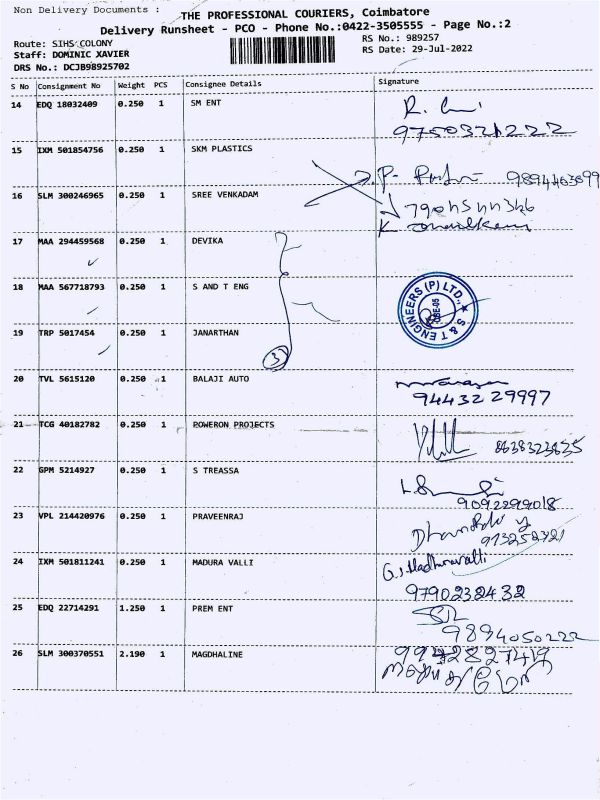 Non Delivery Documents :
THE PROFESSIONAL COURIERS, Coimbatore
Delivery Runsheet - PCO - Phone No.:0422-3505555 - Page No.:2
Route: SIHS COLONY
RS No.: 989257
Staff: DOMINIC XAVIER
RS Date: 29-Jul-2022
DRS No.: DCJB98925702
S No Consignment No Weight PCS Consignee Details Signature
14 EDQ 18032409 0.250 1 SM ENT
15 IXM 501854756 0.250 1 SKM PLASTICS
16 SLM 300246965 0.250 1 SREE VENKADAM
17 MAA 294459568 0.250 1 DEVIKA
18 MAA 567718793 0.250 1 S AND T ENG
S & T ENGINEERS (P) LTD.,
19 TRP 5017454 0.250 1 JANARTHAN
3
20 TVL 5615120 0.250 1 BALAJI AUTO
94432 29997
21 TCG 40182782 0.250 1 POWERON PROJECTS
22 GPM 5214927 0.250 1 S TREASSA
9092299018
23 VPL 214420976 0.250 1 PRAVEENRAJ
24 IXM 501811241 0.250 1 MADURA VALLI
9790232432
25 EDQ 22714291 1.250 1 PREM ENT
9894050222
26 SLM 300370551 2.190 1 MAGDHALINE